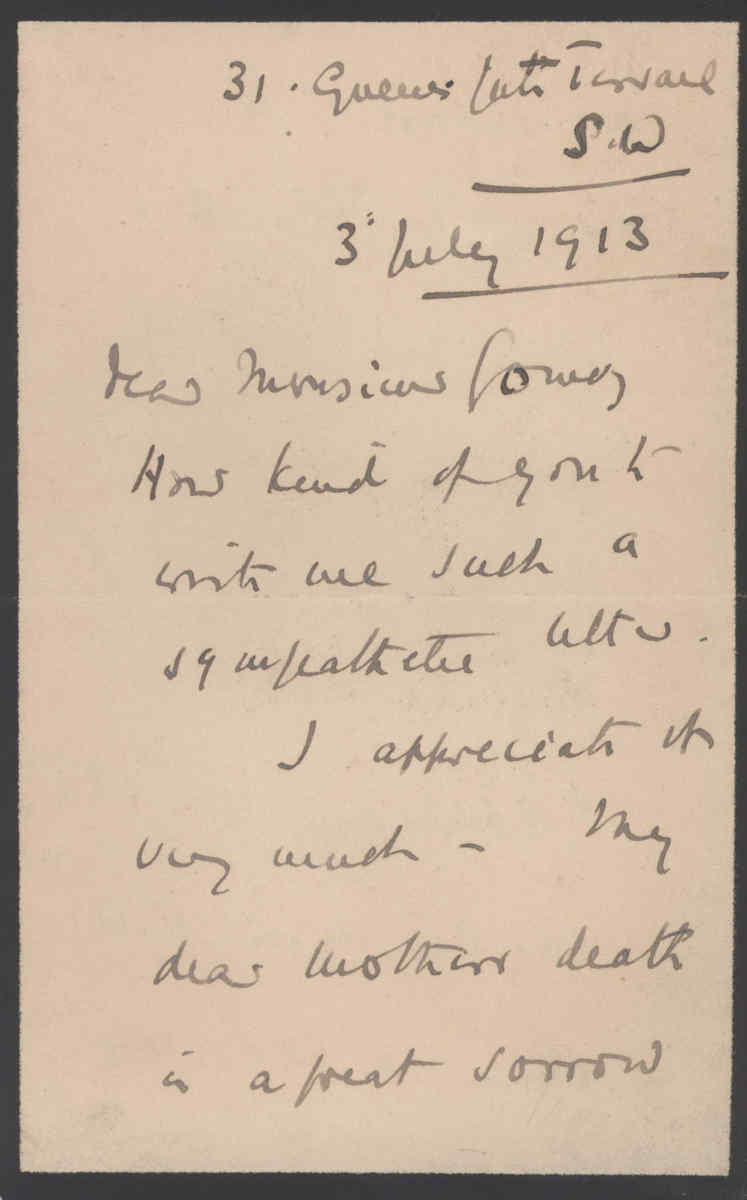 31. Queens Gate Terrace
S.W
3 July 1913
Dear Monsieur
How kind of you to
write me such a
sympathetic letter.
I appreciate it
very much - My
dear mothers death
is a great sorrow